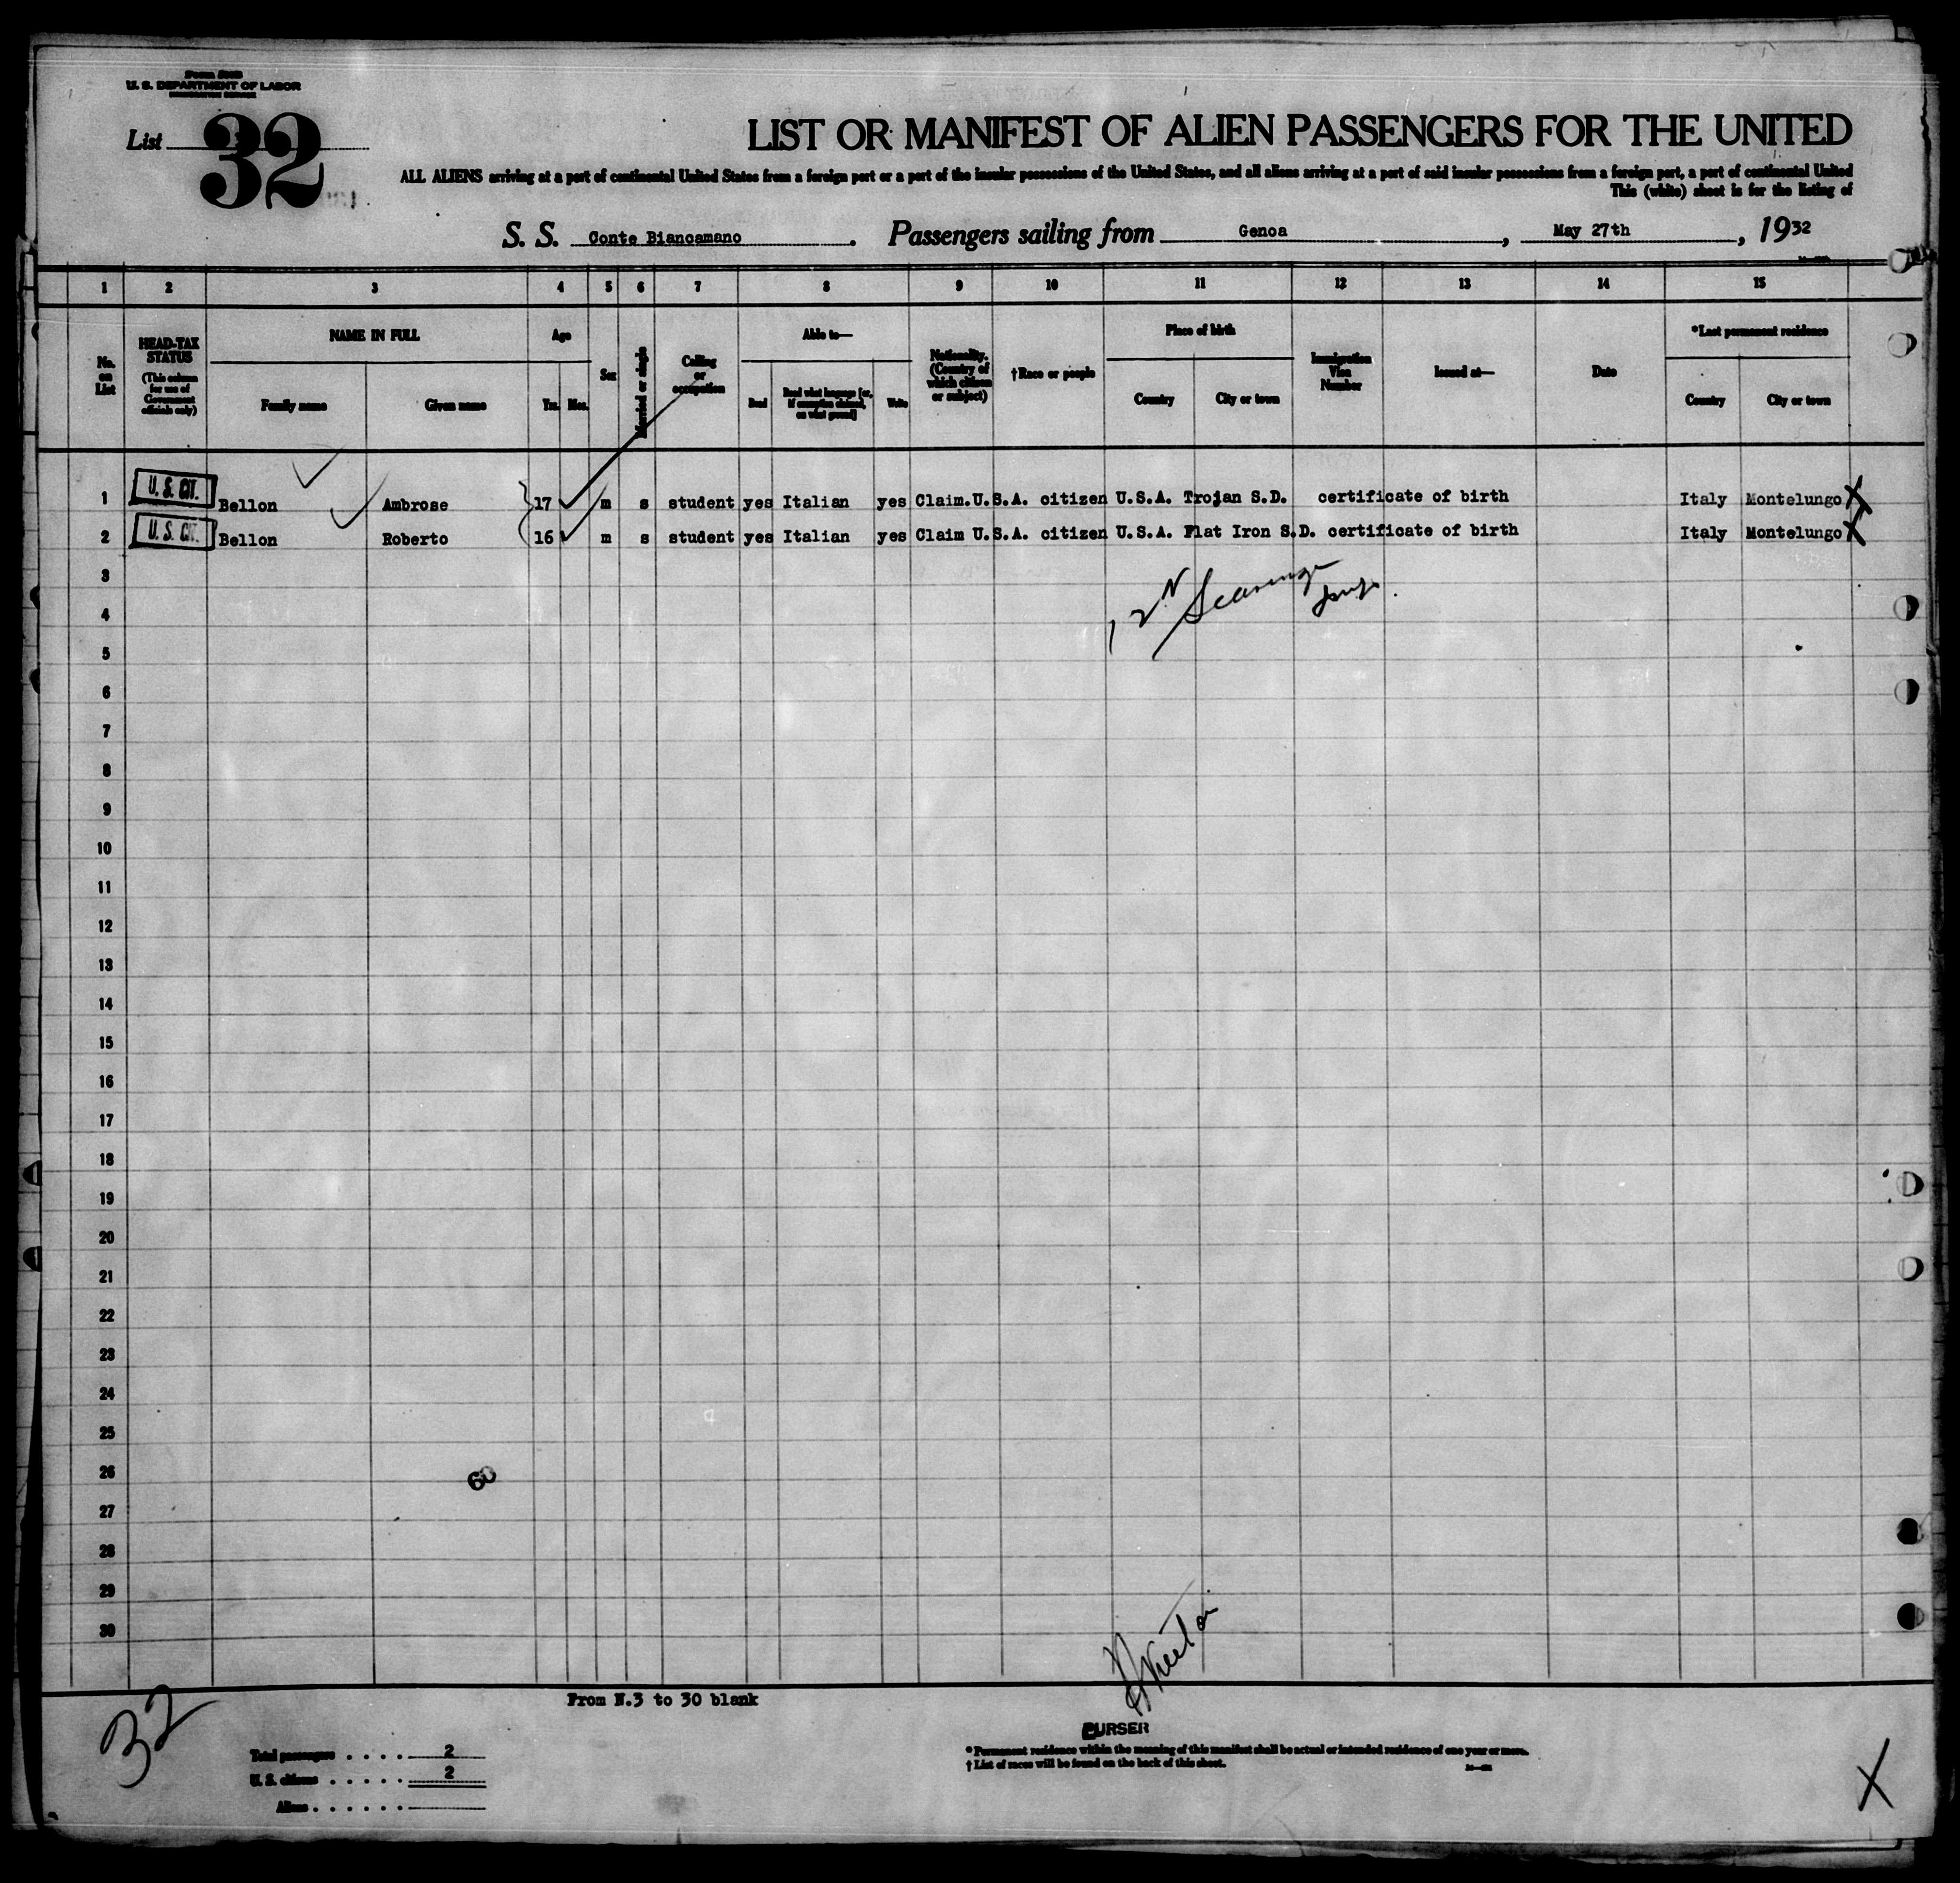 U. S. DEPARTMENT OF LABOR
List 32
LIST OR MANIFEST OF ALIEN PASSENGERS FOR THE UNITED
ALL ALIENS arriving at a port of continental United States from a foreign port or a port of the insular possessions of the United States, and all aliens arriving at a port of said insular possessions from a foreign port, a port of continental United
This (white) sheet is for the listing of
S. S. Conte Biancamano. Passengers sailing from Genoa, May 27th, 1932
1 2 3 4 5 6 7 8 9 10 11 12 13 14 15
No. on List
HEAD-TAX STATUS
(This column for use of Government officials only)
NAME IN FULL
Family name Given name
Age
Yrs. Mos.
Sex
Married or single
Calling or occupation
Able to—
Read
Read what language [or, if exemption claimed, on what ground]
Write
Nationality. (Country of which citizen or subject)
†Race or people
Place of birth
Country City or town
Immigration Visa Number
Issued at—
Date
*Last permanent residence
Country City or town
1 U. S. CIT. Bellon Ambrose 17 m s student yes Italian yes Claim.U.S.A. citizen U.S.A. Trojan S.D. certificate of birth Italy Montelungo X
2 U. S. CIT. Bellon Roberto 16 m s student yes Italian yes Claim U.S.A. citizen U.S.A. Flat Iron S.D. certificate of birth Italy Montelungo X
3
4
5
6
7
8
9
10
11
12
13
14
15
16
17
18
19
20
21
22
23
24
25
26
60
27
28
29
30
From N.3 to 30 blank
32
PURSER
Total passengers . . . . 2
U. S. citizens . . . . . 2
Aliens . . . . . .
* Permanent residence within the meaning of this manifest shall be actual or intended residence of one year or more.
† List of races will be found on the back of this sheet.
X